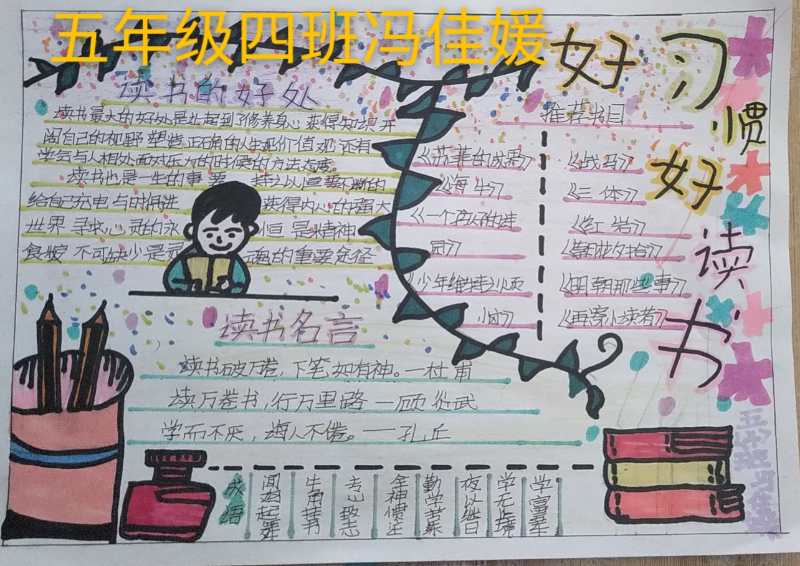 五年级四班冯佳媛
好习惯好读书
读书的好处
读书最大的好处是让起到了修养身心 获得知识 开
阔自己的视野 塑造正确的人生观价值观 还有
学会与人相处面对压力的时候的方法态度
读书也是一生的事 要 不断的
给自己充电 与时俱进 获得内心的强大
世界 寻找心灵的永恒 是精神
食粮 不可缺少 是 的重要途径
推荐书目
《苏菲的世界》
《海牛》
《一个
园》
《少年维特之烦
恼》
《战马》
《三体》
《红岩》
《朝花夕拾》
《明朝那些事》
《再寄小读者》
读书名言
读书破万卷，下笔如有神。—杜甫
读万卷书，行万里路 —顾炎武
学而不厌，诲人不倦。—孔丘
成语
闻鸡起舞
牛角挂书
专心致志
全神贯注
勤学苦练
夜以继日
学无止境
学富五车